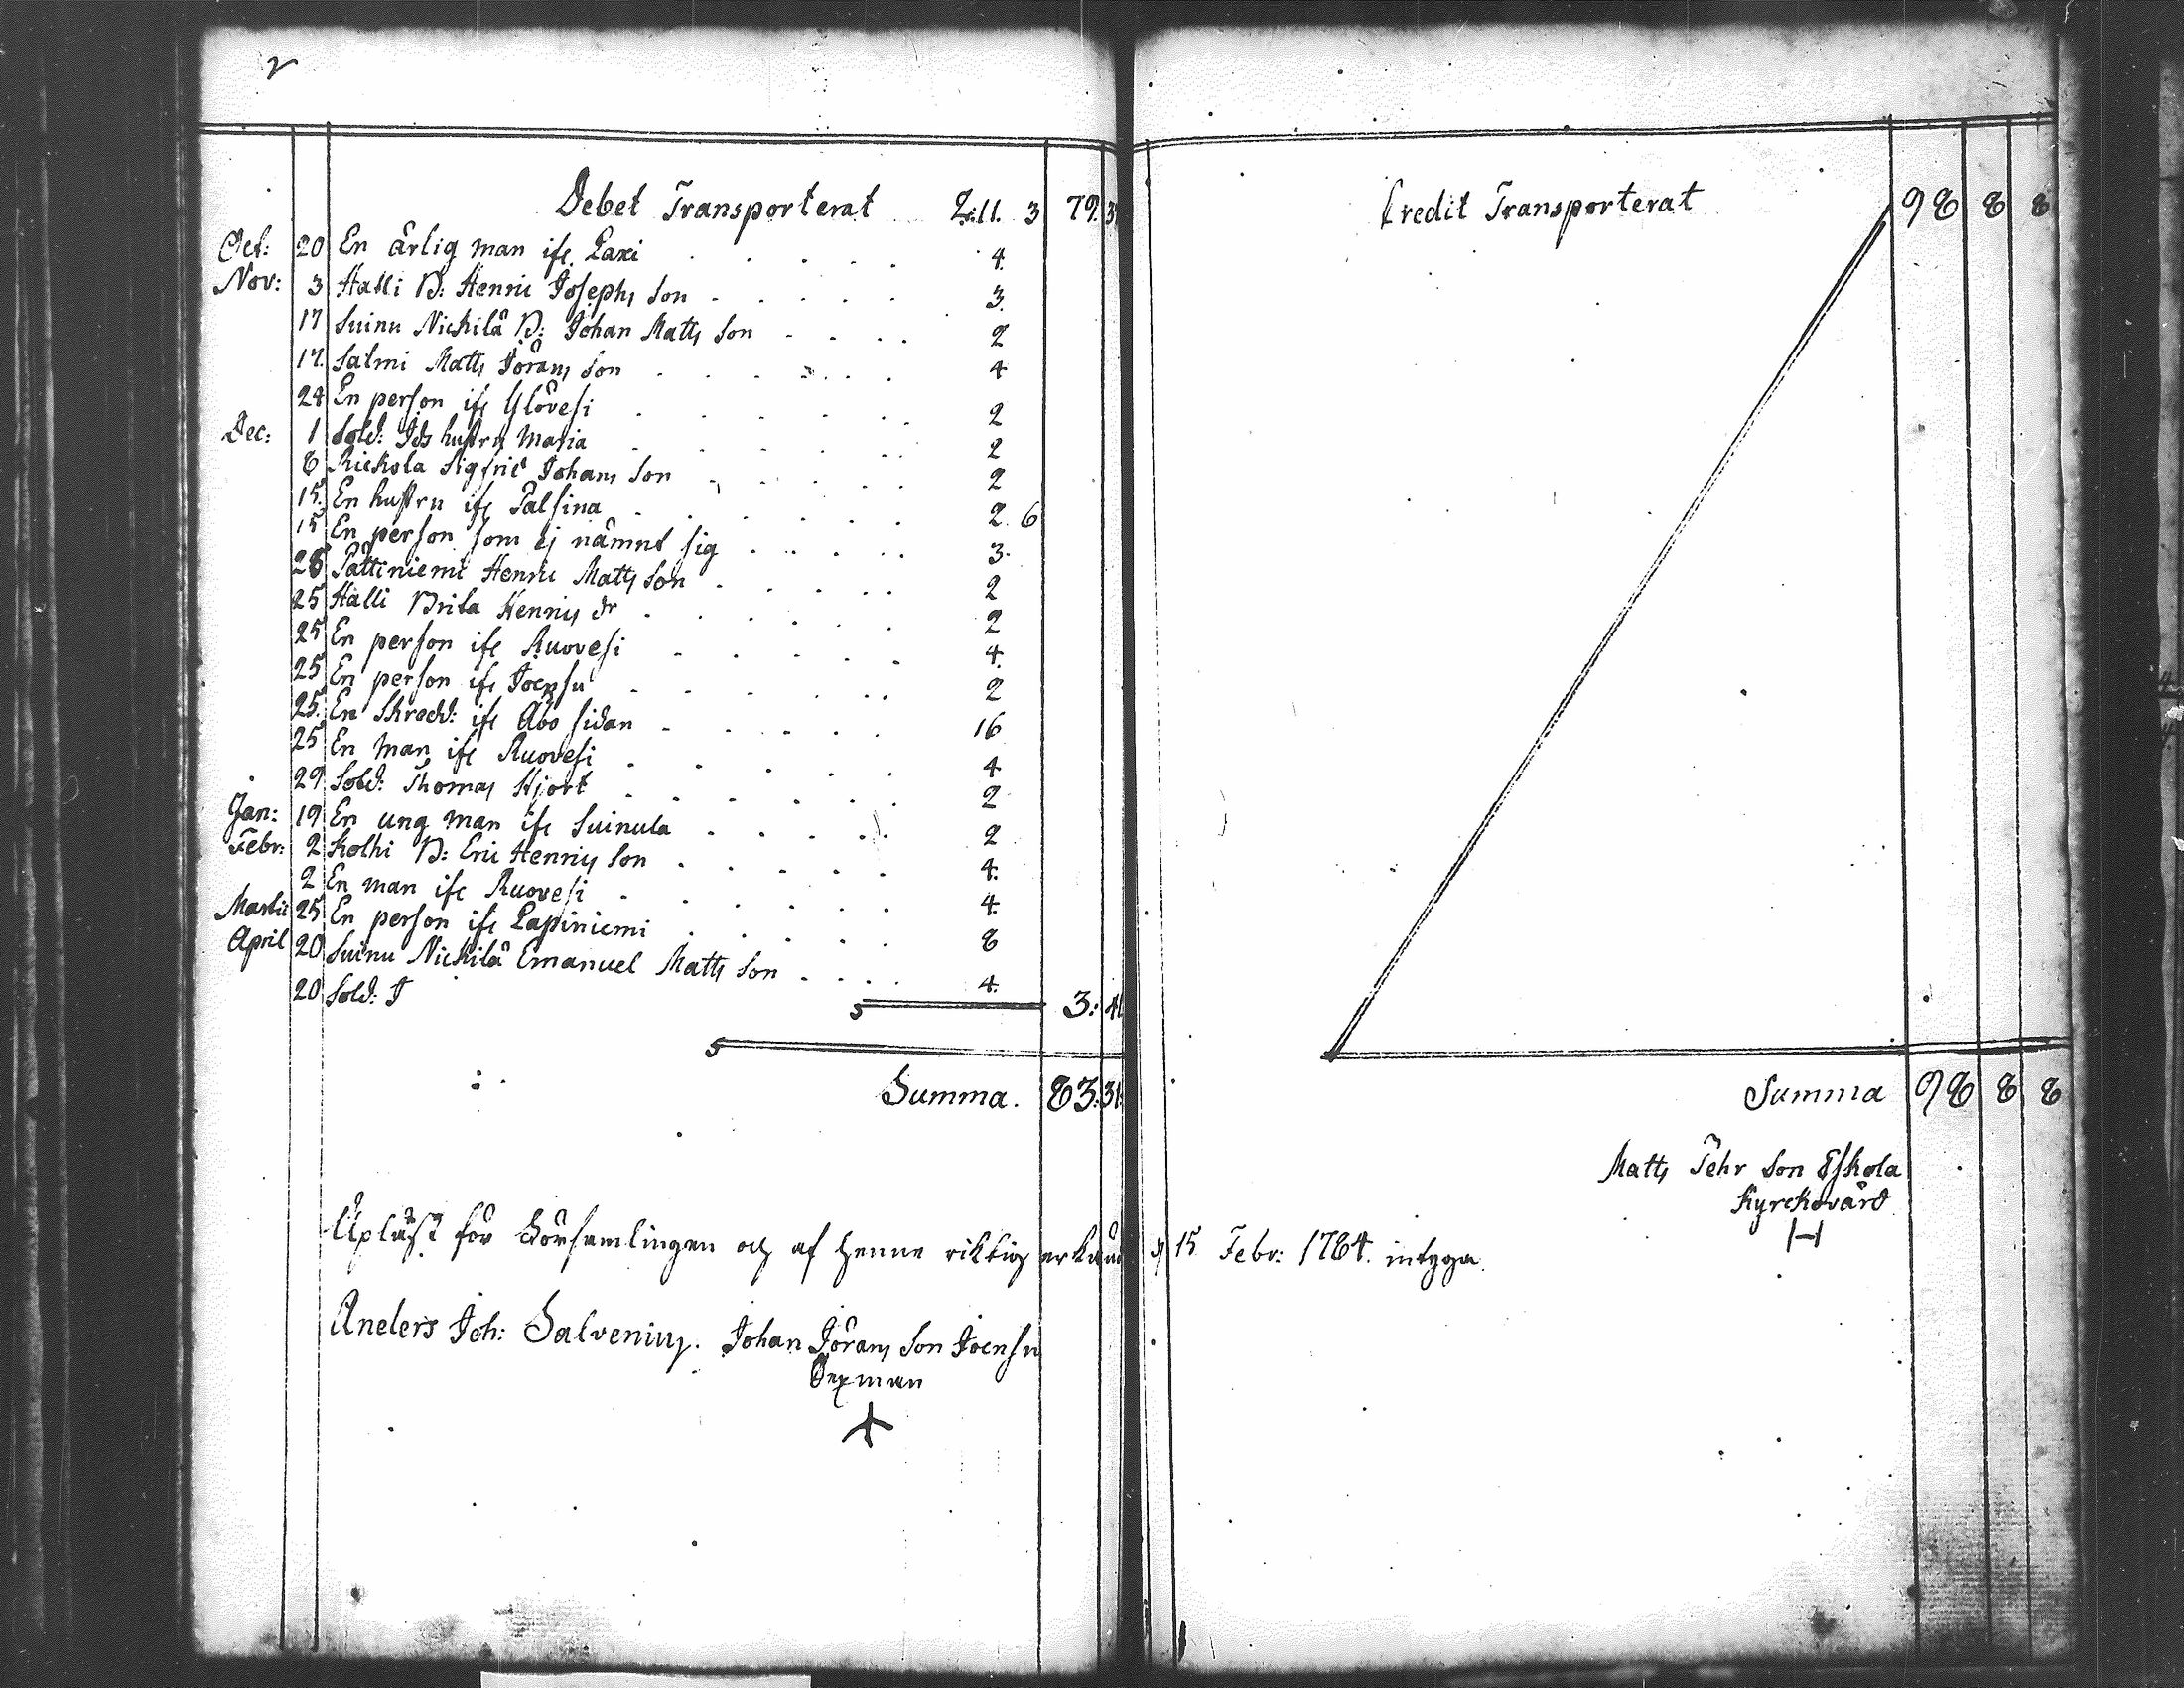 2
Debet Transporterat 2:11. 3 79. 3
Oct: 20 En ärlig man ifr. Laxi 4.
Nov: 3 Halli B: Henric Josephs Son 3.
17 Suinu Nickilä B: Johan Matts Son 2
17. Salmi Matts Jörans Son 4
24 En person ifr Ylövesi 2
Dec: 1 Sold: Ids hustru Maria 2
8 Rickola Sigfrid Johans Son 2
15. En hustru ifr Palsina 2. 6
15 En person som ej nämnt sig 3.
26 Pättiniemi Henric Matts Son 2
25 Halli Brita Henrics dr 2
25 En person ifr Ruovesi 4.
25 En person ifr Joensu 2
25. En Skredd: ifr Åbo sidan 16
25 En man ifr Ruovesi 4
29 Sold: Thomas Hjort 2
Jan: 19 En ung man ifr Suinula 2
Febr: 2 Kolhi B: Eric Henrics Son 4.
2 En man ifr Ruovesi 4.
Martii 25 En person ifr Lapiniemi 8
April 20 Suinu Nickilä Emanuel Matts Son 4.
20 Sold: I
3: 4
Summa. 83: 31
Upläst för Församlingen och af henne riktig erkänd d 15 Febr: 1784. intyga.
Anders Joh: Salvenius. Johan Jörans Son Joensu
Sexman
Credit Transporterat 98 8 8
Summa 98 8 8
Matts Pehr Son Eskola
Kyrckovärd